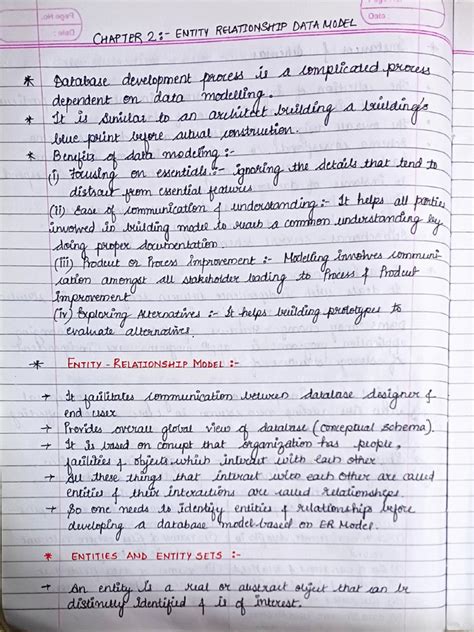 Page No.
Date:
Date:
CHAPTER 2:- ENTITY RELATIONSHIP DATA MODEL
* Database development process is a complicated process
dependent on data modelling.
* It is similar to an architect building a building's
blue print before actual construction.
* Benefits of data modeling :-
(i) Focusing on essentials:- ignoring the details that tend to
distract from essential features
(ii) Ease of communication & understanding:- It helps all parties
involved in building model to reach a common understanding by
doing proper documentation
(iii) Product or Process Improvement :- Modelling involves communi
cation amongst all stakeholder leading to Process & Product
improvement
(iv) Exploring Alternatives :- It helps building prototypes to
evaluate alternatives.
* ENTITY - RELATIONSHIP MODEL :-
→ It facilitates communication between database designer &
end user
→ Provides overall global view of database (conceptual schema).
→ It is based on concept that organization has people,
facilities & objects which interact with each other.
→ All these things that interact with each other are called
entities & their interactions are called relationships.
→ So one needs to identify entities & relationships before
developing a database model based on ER Model.
* ENTITIES AND ENTITY SETS :-
→ An entity is a real or abstract object that can be
distinctly identified & is of interest.